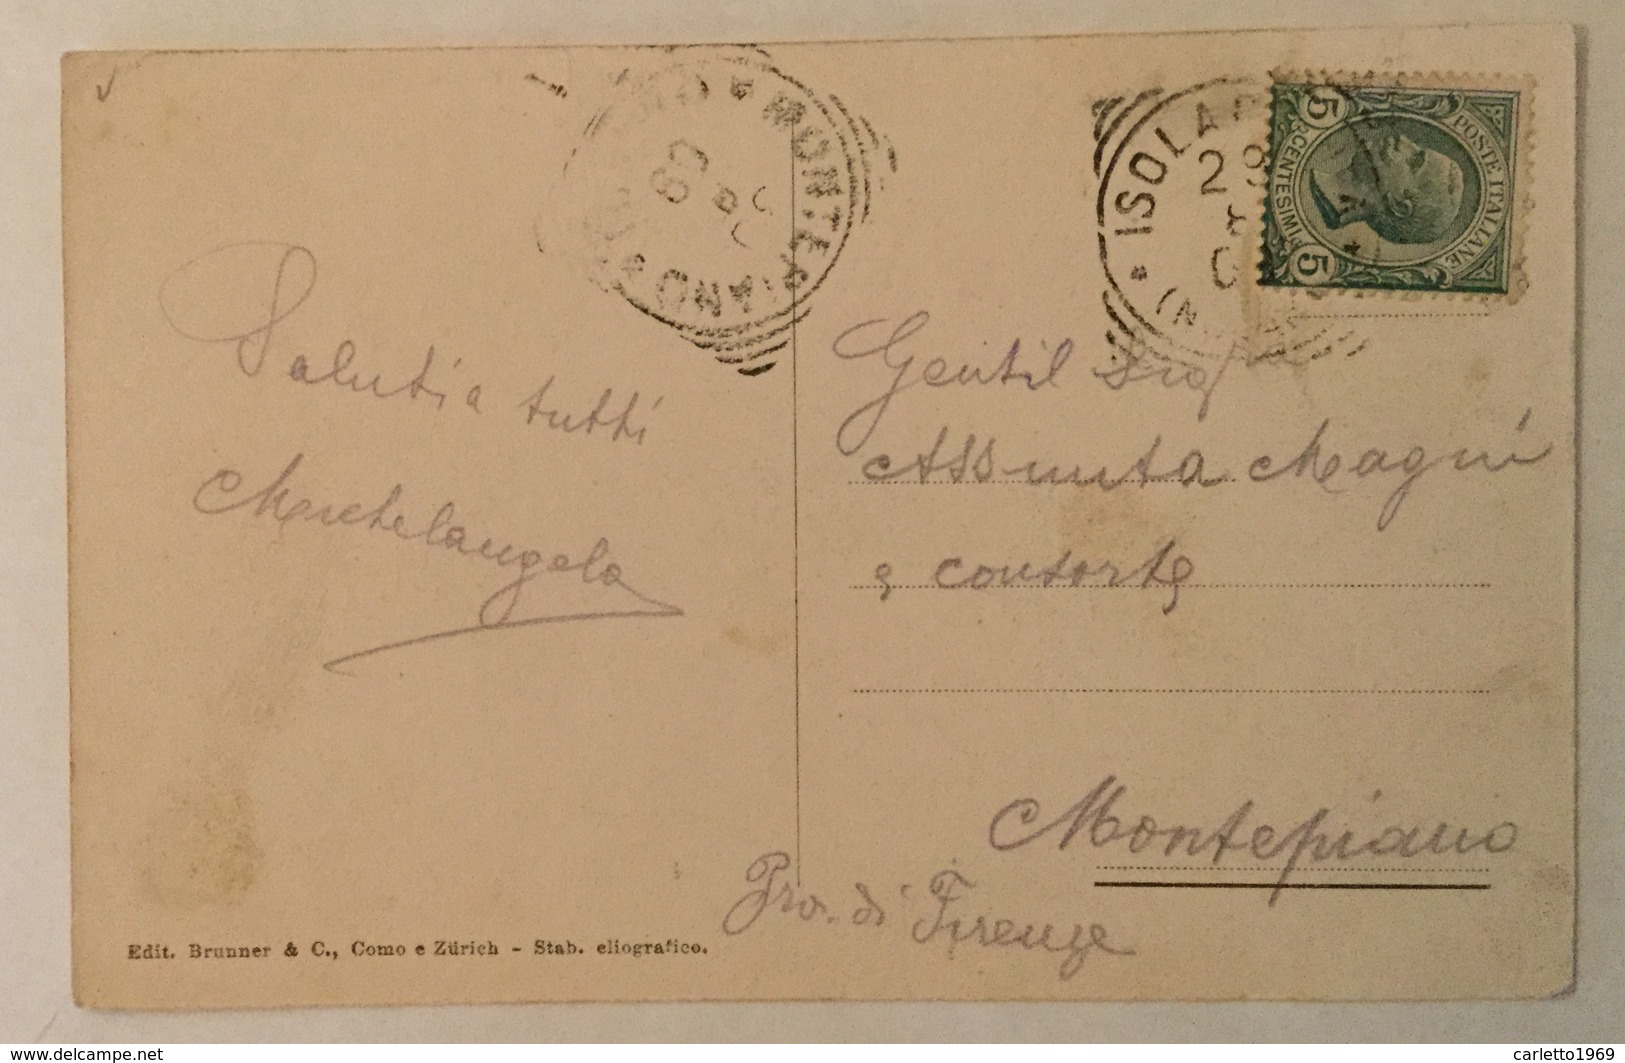 Saluti a tutti
Michelangelo
MONTEPIANO
ISOLA
5
CENTESIMI
5
POSTE ITALIANE
Gentil Sigᵃ
Assunta Magni
e consorte
Montepiano
Pro. di Firenze
Edit. Brunner & C., Como e Zürich - Stab. eliografico.
www.delcampe.net
carletto1969